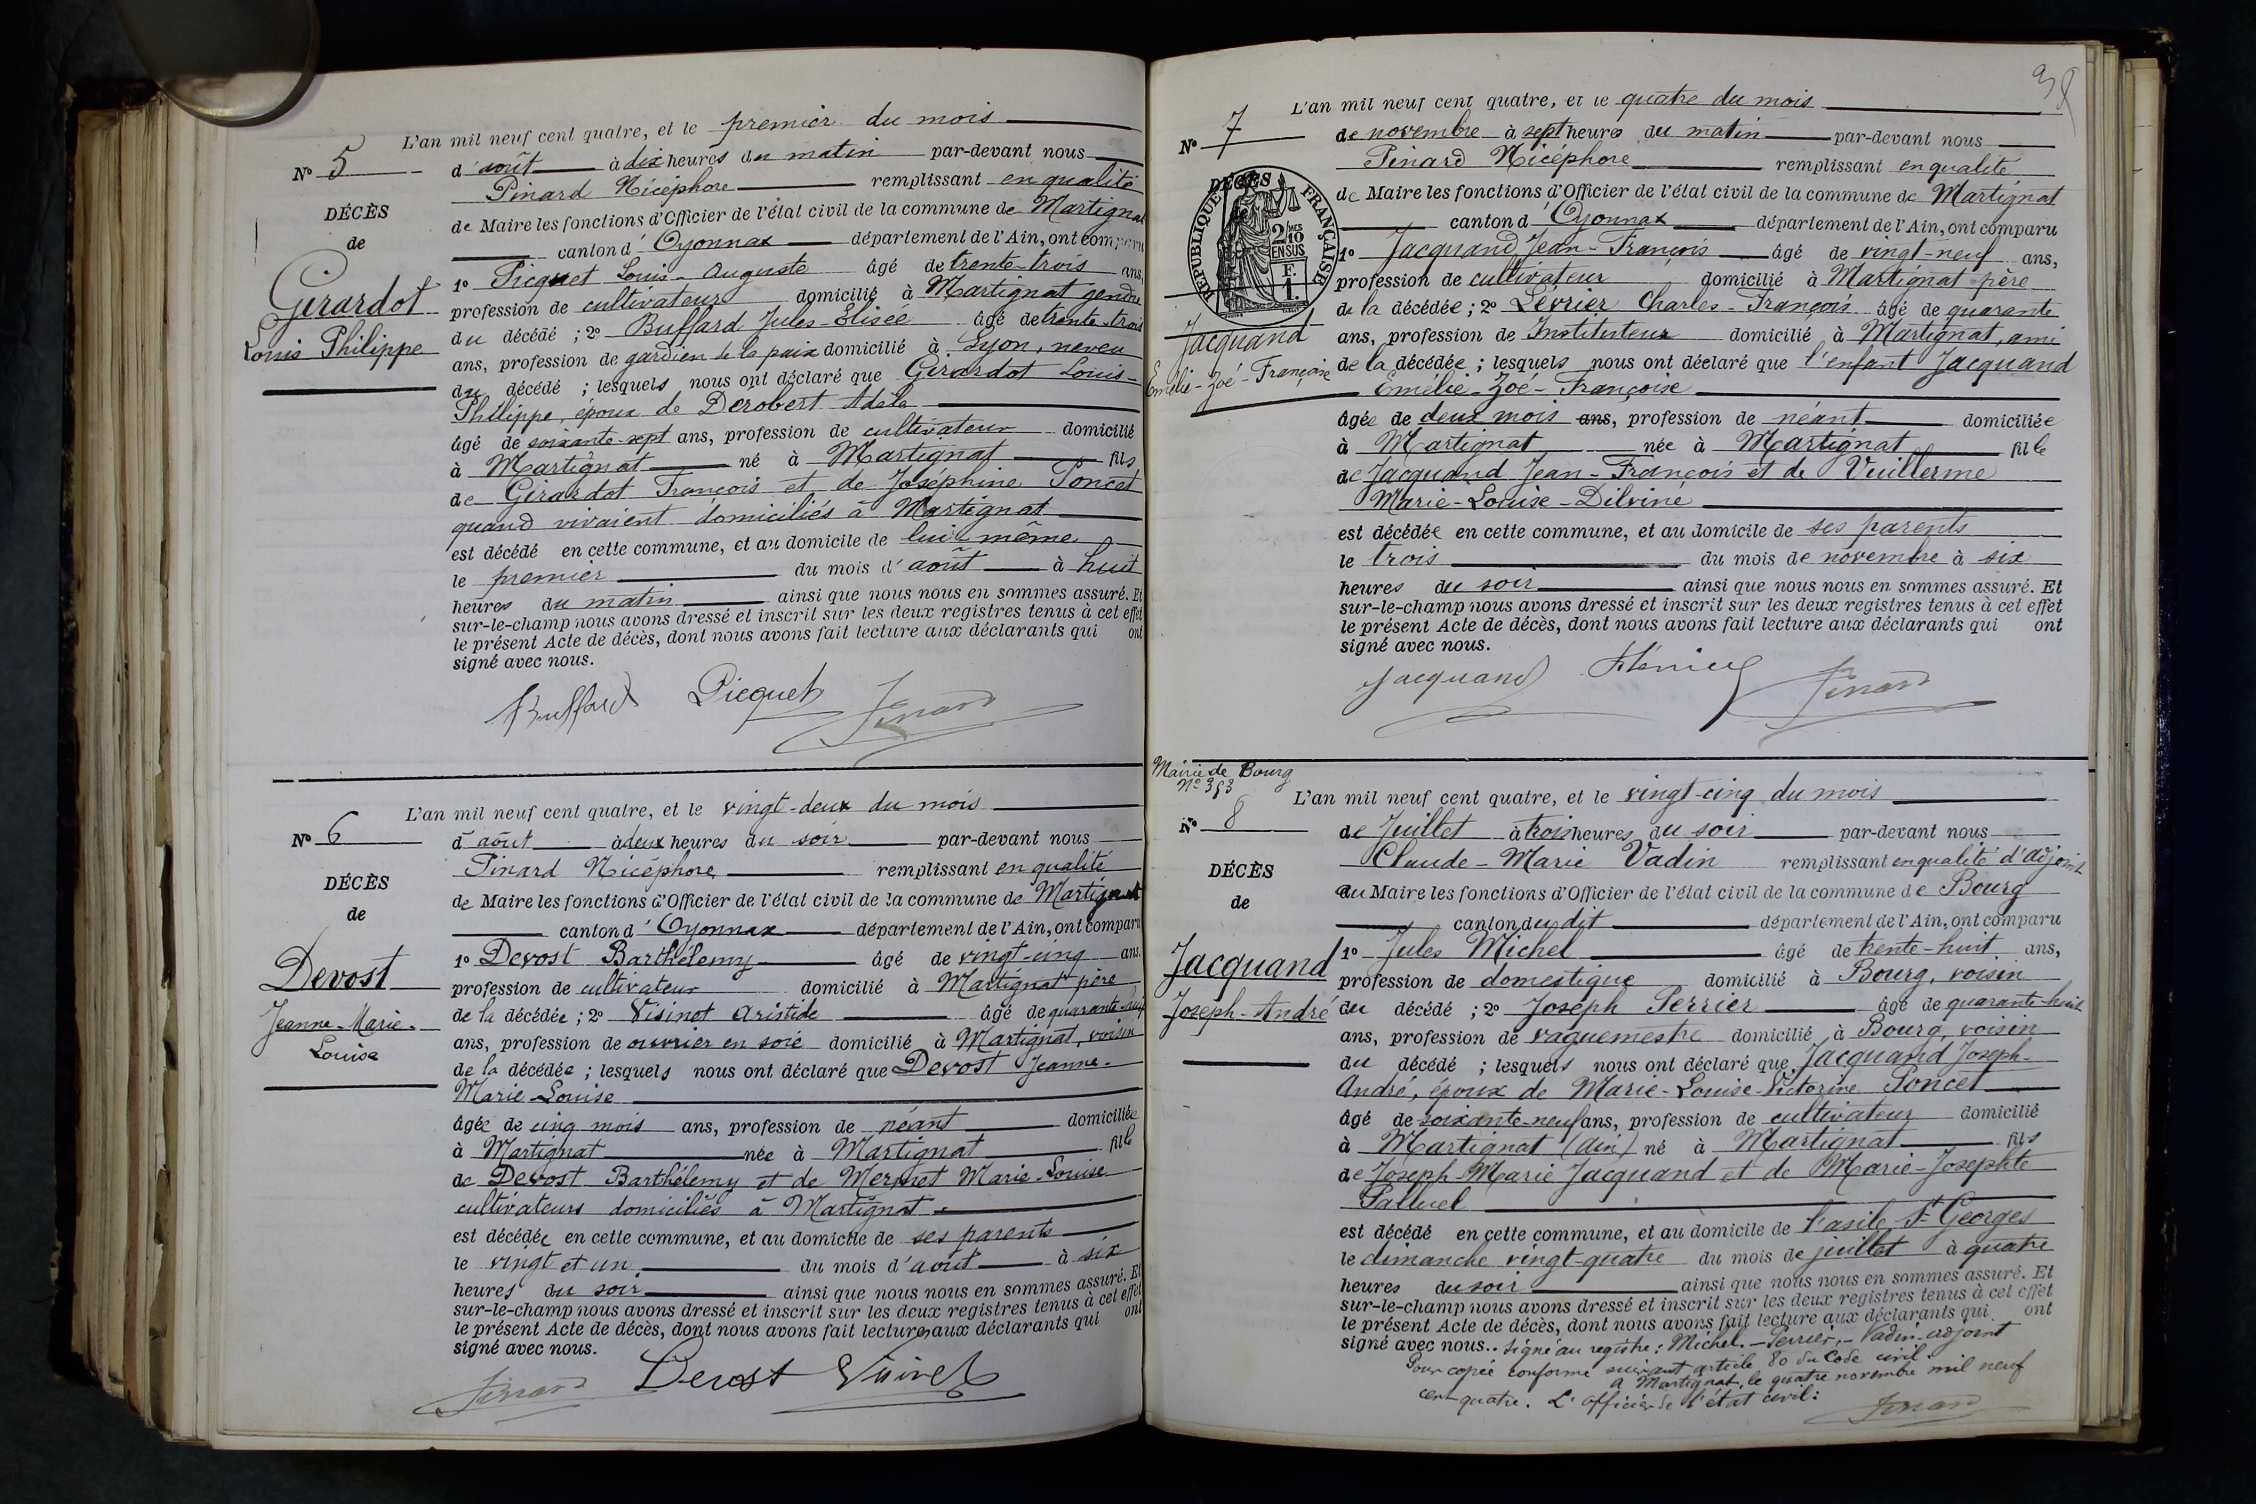 L'an mil neuf cent quatre, et le premier du mois
N° 5
d'août à dix heures du matin par-devant nous
Pinard Nicéphore remplissant en qualité
DÉCÈS
de Maire les fonctions d'Officier de l'état civil de la commune de Martignat
de
canton d'Oyonnax département de l'Ain, ont comparu
1° Picquet Louis-Auguste âgé de trente-trois ans,
Girardot
profession de cultivateur domicilié à Martignat gendre
du décédé ; 2° Buffard Jules-Elisée âgé de trente-trois
Louis Philippe
ans, profession de gardien de la paix domicilié à Lyon, neveu
du décédé ; lesquels nous ont déclaré que Girardot Louis-
Philippe, époux de Derobert Adèle
âgé de soixante-sept ans, profession de cultivateur domicilié
à Martignat né à Martignat fils
de Girardot François et de Joséphine Poncet
quand vivaient domiciliés à Martignat
est décédé en cette commune, et au domicile de lui même
le premier du mois d'août à huit
heures du matin ainsi que nous nous en sommes assuré. Et
sur-le-champ nous avons dressé et inscrit sur les deux registres tenus à cet effet
le présent Acte de décès, dont nous avons fait lecture aux déclarants qui ont
signé avec nous.
Buffard Picquet Pinard
L'an mil neuf cent quatre, et le vingt-deux du mois
N° 6
d'août à deux heures du soir par-devant nous
Pinard Nicéphore remplissant en qualité
DÉCÈS
de Maire les fonctions d'Officier de l'état civil de la commune de Martignat
de
canton d'Oyonnax département de l'Ain, ont comparu
1° Devost Barthélemy âgé de vingt-cinq ans,
Devost
profession de cultivateur domicilié à Martignat père
de la décédée ; 2° Visinot Aristide âgé de quarante-
Jeanne-Marie-
ans, profession de ouvrier en soie domicilié à Martignat, voisin
Louise
de la décédée ; lesquels nous ont déclaré que Devost Jeanne-
Marie-Louise
âgée de cinq mois ans, profession de néant domiciliée
à Martignat née à Martignat fille
de Devost Barthélemy et de Mermet Marie-Louise
cultivateurs domiciliés à Martignat
est décédée en cette commune, et au domicile de ses parents
le vingt et un du mois d'août à six
heures du soir ainsi que nous nous en sommes assuré. Et
sur-le-champ nous avons dressé et inscrit sur les deux registres tenus à cet effet
le présent Acte de décès, dont nous avons fait lecture aux déclarants qui ont
signé avec nous.
Pinard Devost
38
L'an mil neuf cent quatre, et le quatre du mois
N° 7
de novembre à sept heures du matin par-devant nous
Pinard Nicéphore remplissant en qualité
DÉCÈS
RÉPUBLIQUE FRANÇAISE
2/10 MES
EN SUS
F.
1.
de Maire les fonctions d'Officier de l'état civil de la commune de Martignat
canton d'Oyonnax département de l'Ain, ont comparu
1° Jacquand Jean-François âgé de vingt-neuf ans,
profession de cultivateur domicilié à Martignat père
de la décédée ; 2° Lévrier Charles-François âgé de quarante
Jacquand
ans, profession de Instituteur domicilié à Martignat, ami
Emélie-Zoé-Françoise
de la décédée ; lesquels nous ont déclaré que l'enfant Jacquand
Emélie-Zoé-Françoise
âgée de deux mois ans, profession de néant domiciliée
à Martignat née à Martignat fille
de Jacquand Jean-François et de Vuillerme
Marie-Louise-Delvine
est décédée en cette commune, et au domicile de ses parents
le trois du mois de novembre à six
heures du soir ainsi que nous nous en sommes assuré. Et
sur-le-champ nous avons dressé et inscrit sur les deux registres tenus à cet effet
le présent Acte de décès, dont nous avons fait lecture aux déclarants qui ont
signé avec nous.
Jacquand Pinard
Mairie de Bourg
N° 353
L'an mil neuf cent quatre, et le vingt-cinq du mois
N° 8
de Juillet à trois heures du soir par-devant nous
Claude-Marie Vadin remplissant en qualité d'adjoint
DÉCÈS
au Maire les fonctions d'Officier de l'état civil de la commune de Bourg
de
canton du dit département de l'Ain, ont comparu
1° Jules Michel âgé de trente-huit ans,
Jacquand
profession de domestique domicilié à Bourg, voisin
Joseph-André
du décédé ; 2° Joseph Perrier âgé de quarante-huit
ans, profession de vaguemestre domicilié à Bourg, voisin
du décédé ; lesquels nous ont déclaré que Jacquand Joseph-
André, époux de Marie-Louise-Victorine Poncet
âgé de soixante-neuf ans, profession de cultivateur domicilié
à Martignat (Ain) né à Martignat fils
de Joseph-Marie Jacquand et de Marie-Josephte
Palluel
est décédé en cette commune, et au domicile de l'asile St Georges
le dimanche vingt-quatre du mois de juillet à quatre
heures du soir ainsi que nous nous en sommes assuré. Et
sur-le-champ nous avons dressé et inscrit sur les deux registres tenus à cet effet
le présent Acte de décès, dont nous avons fait lecture aux déclarants qui ont
signé avec nous.. Signé au registre : Michel. – Perrier. – Vadin adjoint
Pour copie conforme suivant article 80 du Code civil.
A Martignat, le quatre novembre mil neuf
cent quatre. L'officier de l'état civil :
Pinard